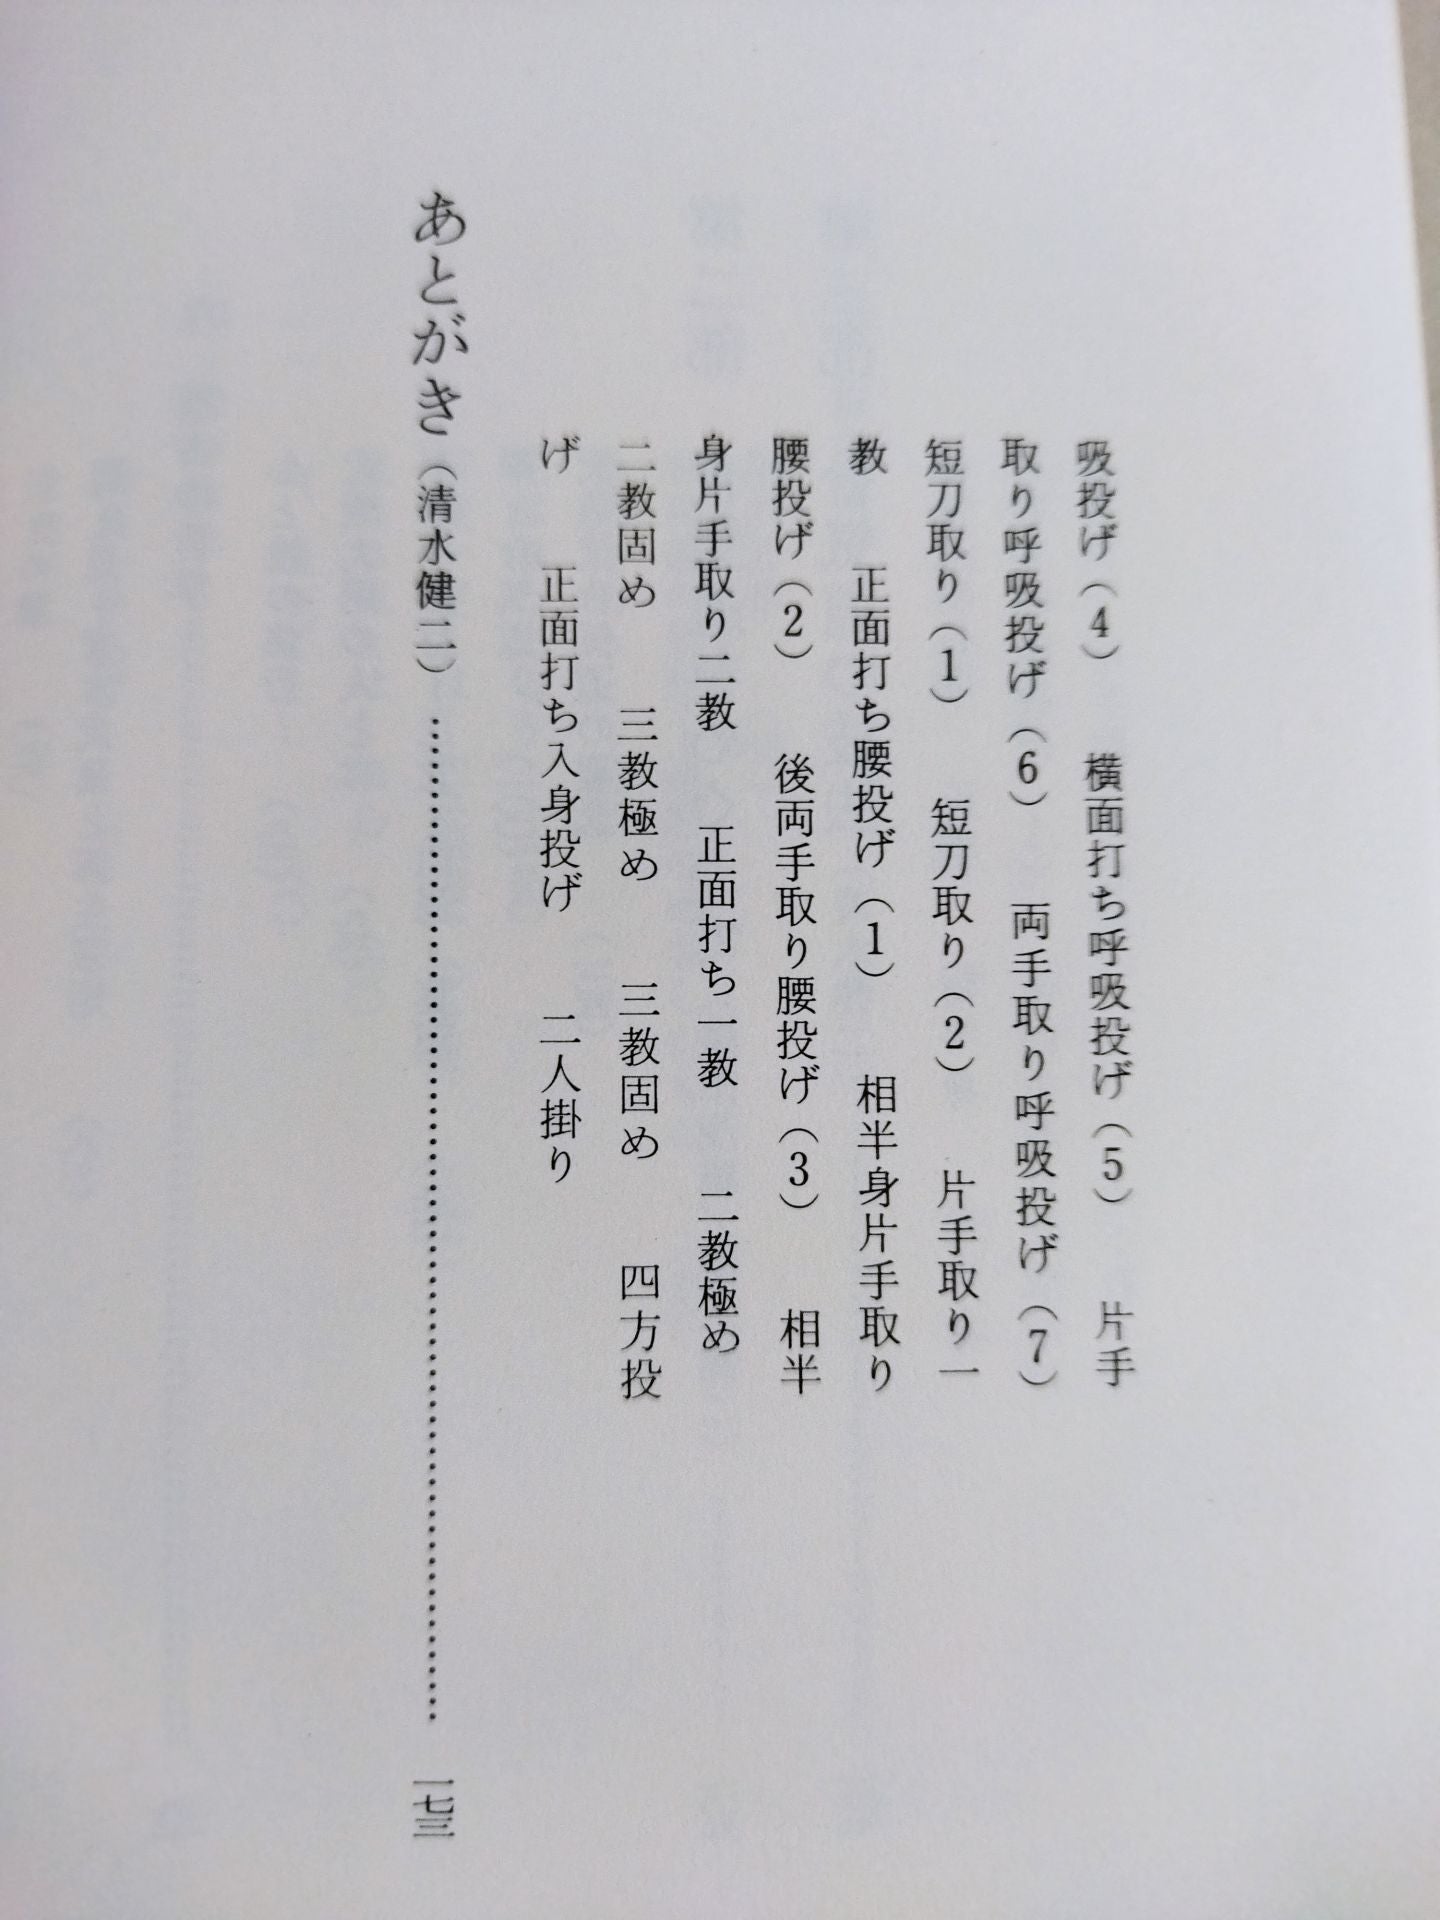 吸投げ（4）　横面打ち呼吸投げ（5）　片手
取り呼吸投げ（6）　両手取り呼吸投げ（7）
短刀取り（1）　短刀取り（2）　片手取り一
教　正面打ち腰投げ（1）　相半身片手取り
腰投げ（2）　後両手取り腰投げ（3）　相半
身片手取り二教　正面打ち一教　二教極め
二教固め　三教極め　三教固め　四方投
げ　正面打ち入身投げ　二人掛り
あとがき（清水健二）……………………………………一七三